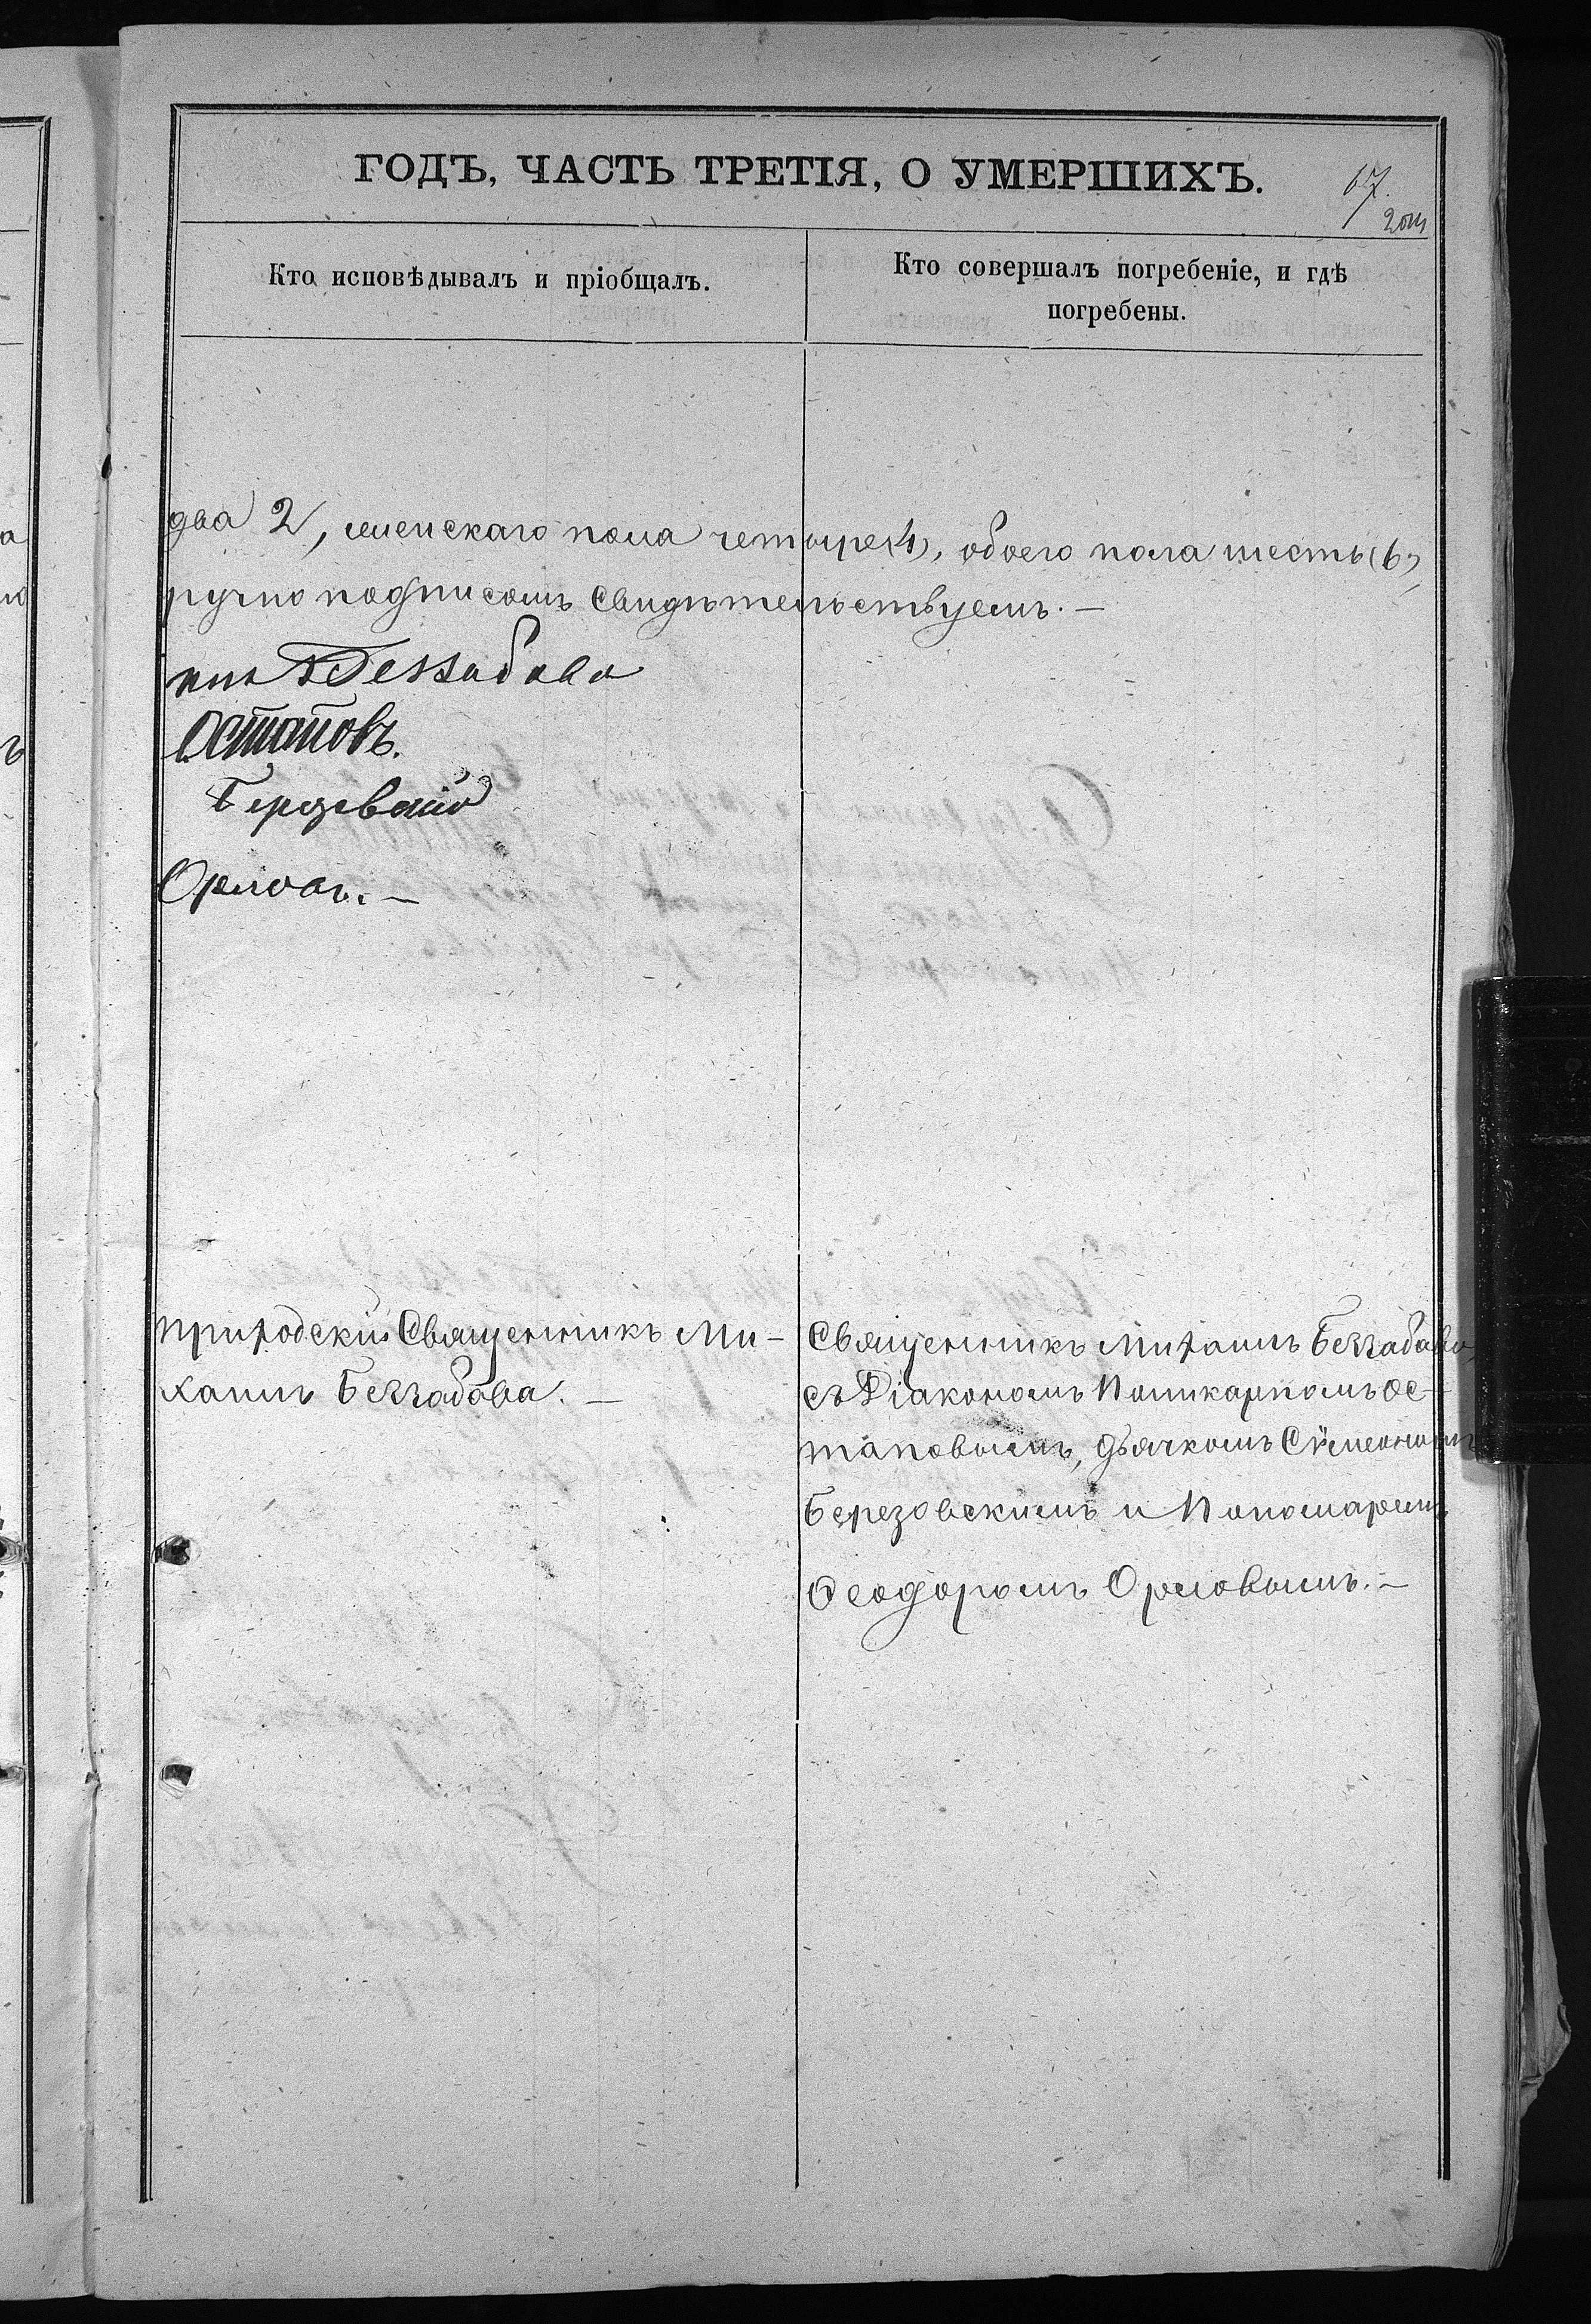 ГОДЪ, ЧАСТЬ ТРЕТІЯ, О УМЕРШИХЪ.
67
Кто исповѣдывалъ и пріобщалъ.
Кто совершалъ погребеніе, и гдѣ
погребены.
два 2, женскаго пола четыре (4), обоего пола шесть (6),
ручно подписомъ свидѣтельствуемъ. —
Беззабава
Остаповъ.
Орловъ. —
Приходскій Священникъ Ми-
хаилъ Беззабава. —
Священникъ Михаилъ Беззабава,
съ Діакономъ Поликарпомъ Ос-
таповымъ, дьячкомъ Сѵмеономъ
Березовскимъ и Пономаремъ
Ѳеодоромъ Орловымъ. —